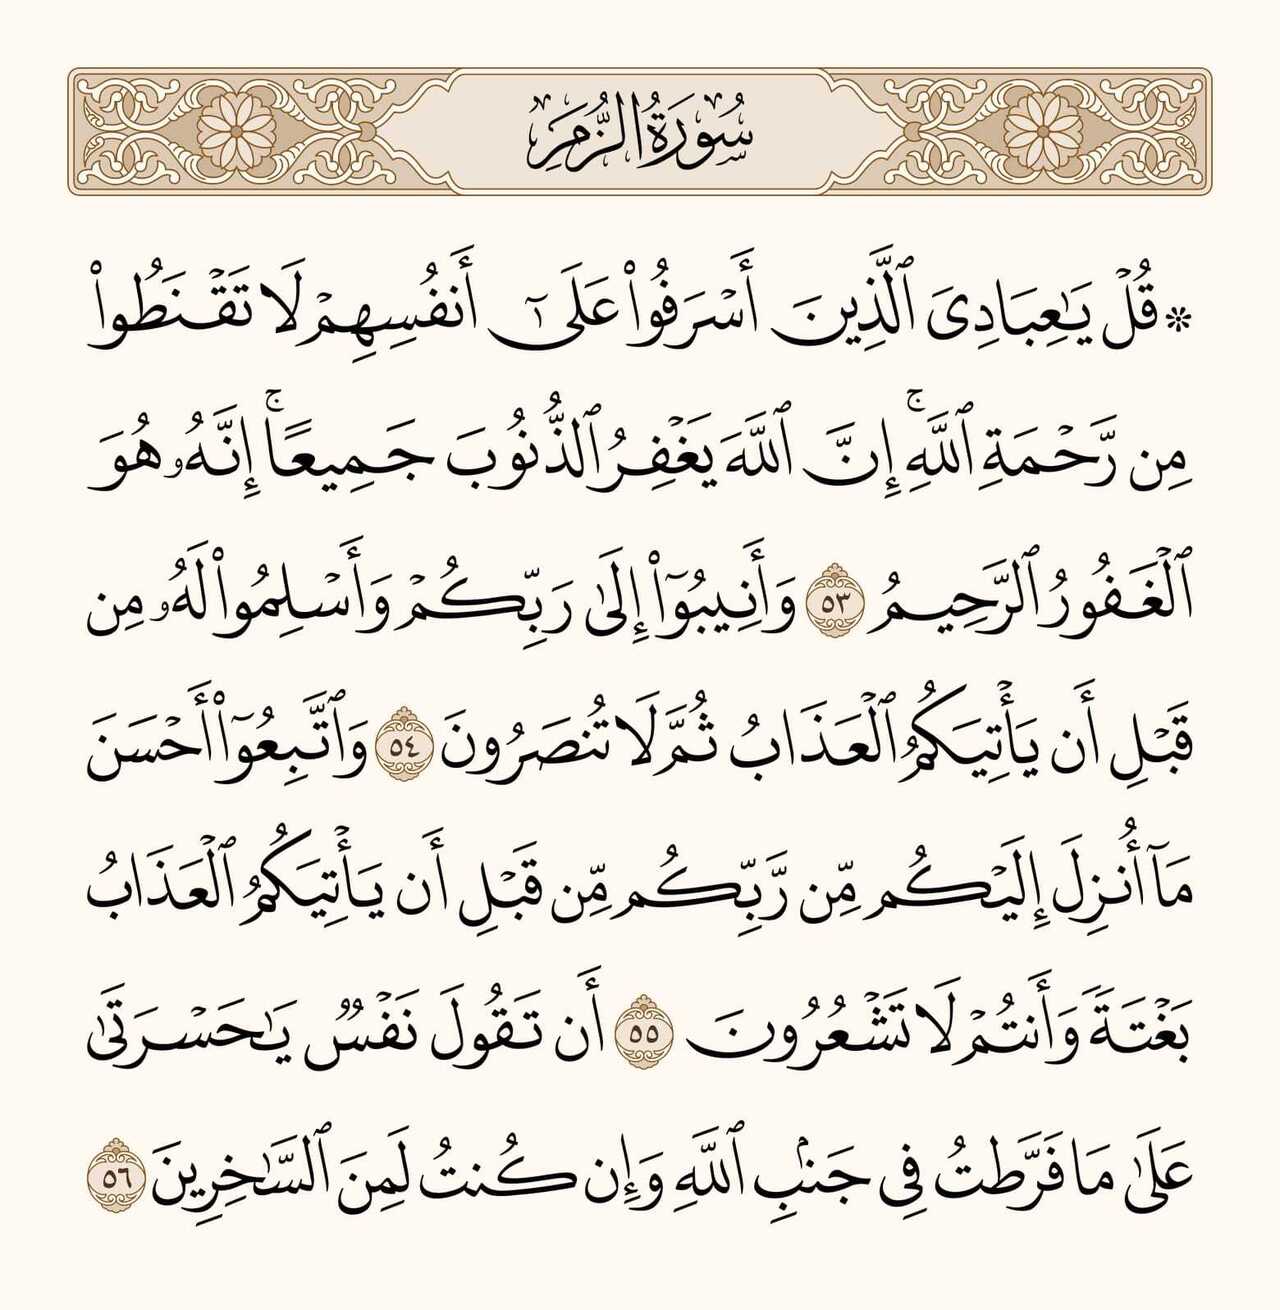 سُورَةُ الزُّمَرِ
۞ قُلْ يَٰعِبَادِىَ ٱلَّذِينَ أَسْرَفُوا۟ عَلَىٰٓ أَنفُسِهِمْ لَا تَقْنَطُوا۟
مِن رَّحْمَةِ ٱللَّهِ ۚ إِنَّ ٱللَّهَ يَغْفِرُ ٱلذُّنُوبَ جَمِيعًا ۚ إِنَّهُۥ هُوَ
ٱلْغَفُورُ ٱلرَّحِيمُ ٥٣ وَأَنِيبُوٓا۟ إِلَىٰ رَبِّكُمْ وَأَسْلِمُوا۟ لَهُۥ مِن
قَبْلِ أَن يَأْتِيَكُمُ ٱلْعَذَابُ ثُمَّ لَا تُنصَرُونَ ٥٤ وَٱتَّبِعُوٓا۟ أَحْسَنَ
مَآ أُنزِلَ إِلَيْكُم مِّن رَّبِّكُم مِّن قَبْلِ أَن يَأْتِيَكُمُ ٱلْعَذَابُ
بَغْتَةً وَأَنتُمْ لَا تَشْعُرُونَ ٥٥ أَن تَقُولَ نَفْسٌ يَٰحَسْرَتَىٰ
عَلَىٰ مَا فَرَّطتُ فِى جَنۢبِ ٱللَّهِ وَإِن كُنتُ لَمِنَ ٱلسَّٰخِرِينَ ٥٦